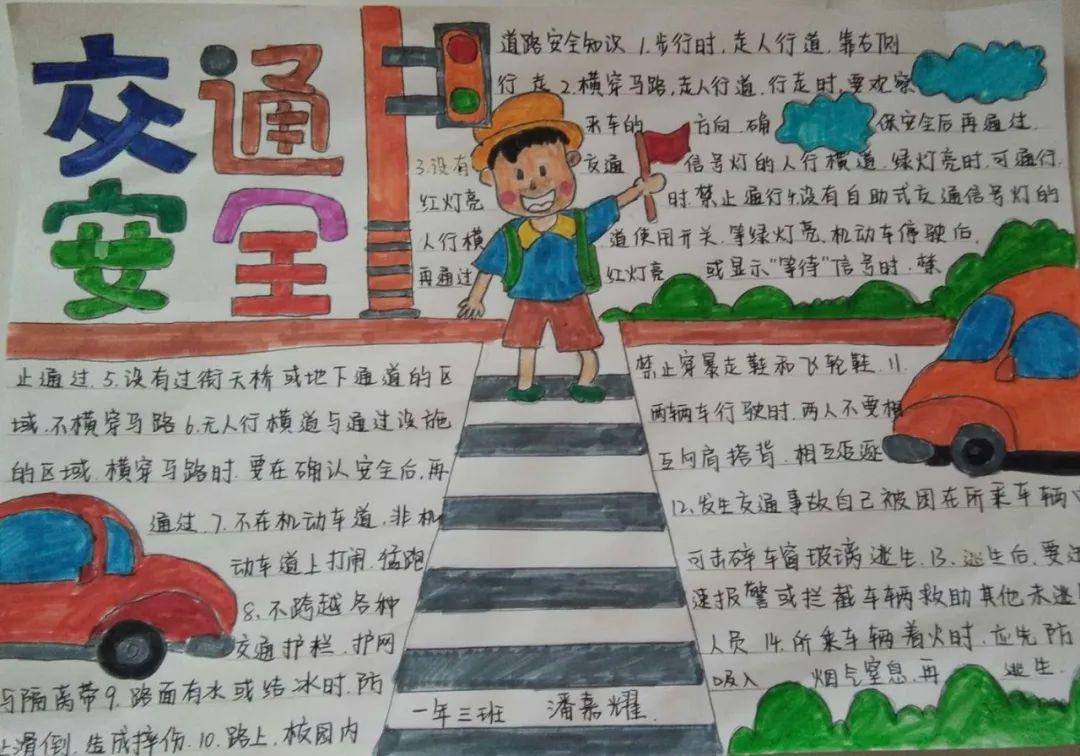 交通
安全
道路安全知识 1.步行时,走人行道,靠右侧
行走 2.横穿马路,走人行道,行走时,要观察
来车的方向,确保安全后再通过.
3.没有交通信号灯的人行横道,绿灯亮时,可通行,
红灯亮时,禁止通行 4.没有自助式交通信号灯的
人行横道使用开关,等绿灯亮、机动车停驶后,
再通过 红灯亮或显示"等待"信号时,禁
止通过. 5.没有过街天桥或地下通道的区
域,不横穿马路 6.无人行横道与通过设施
的区域,横穿马路时,要在确认安全后,再
通过. 7.不在机动车道,非机
动车道上打闹,猛跑
8.不跨越各种
交通护栏、护网
与隔离带 9.路面有水或结冰时,防
止滑倒,造成摔伤. 10.路上,校园内
禁止穿暴走鞋和飞轮鞋. 11.
两辆车行驶时,两人不要相
互勾肩搭背,相互追逐
12.发生交通事故自己被困在所乘车辆
可击碎车窗玻璃逃生. 13.逃生后,要迅
速报警或拦截车辆救助其他未逃
人员 14.所乘车辆着火时,应先防
吸入烟气窒息,再逃生.
一年三班 潘嘉耀.